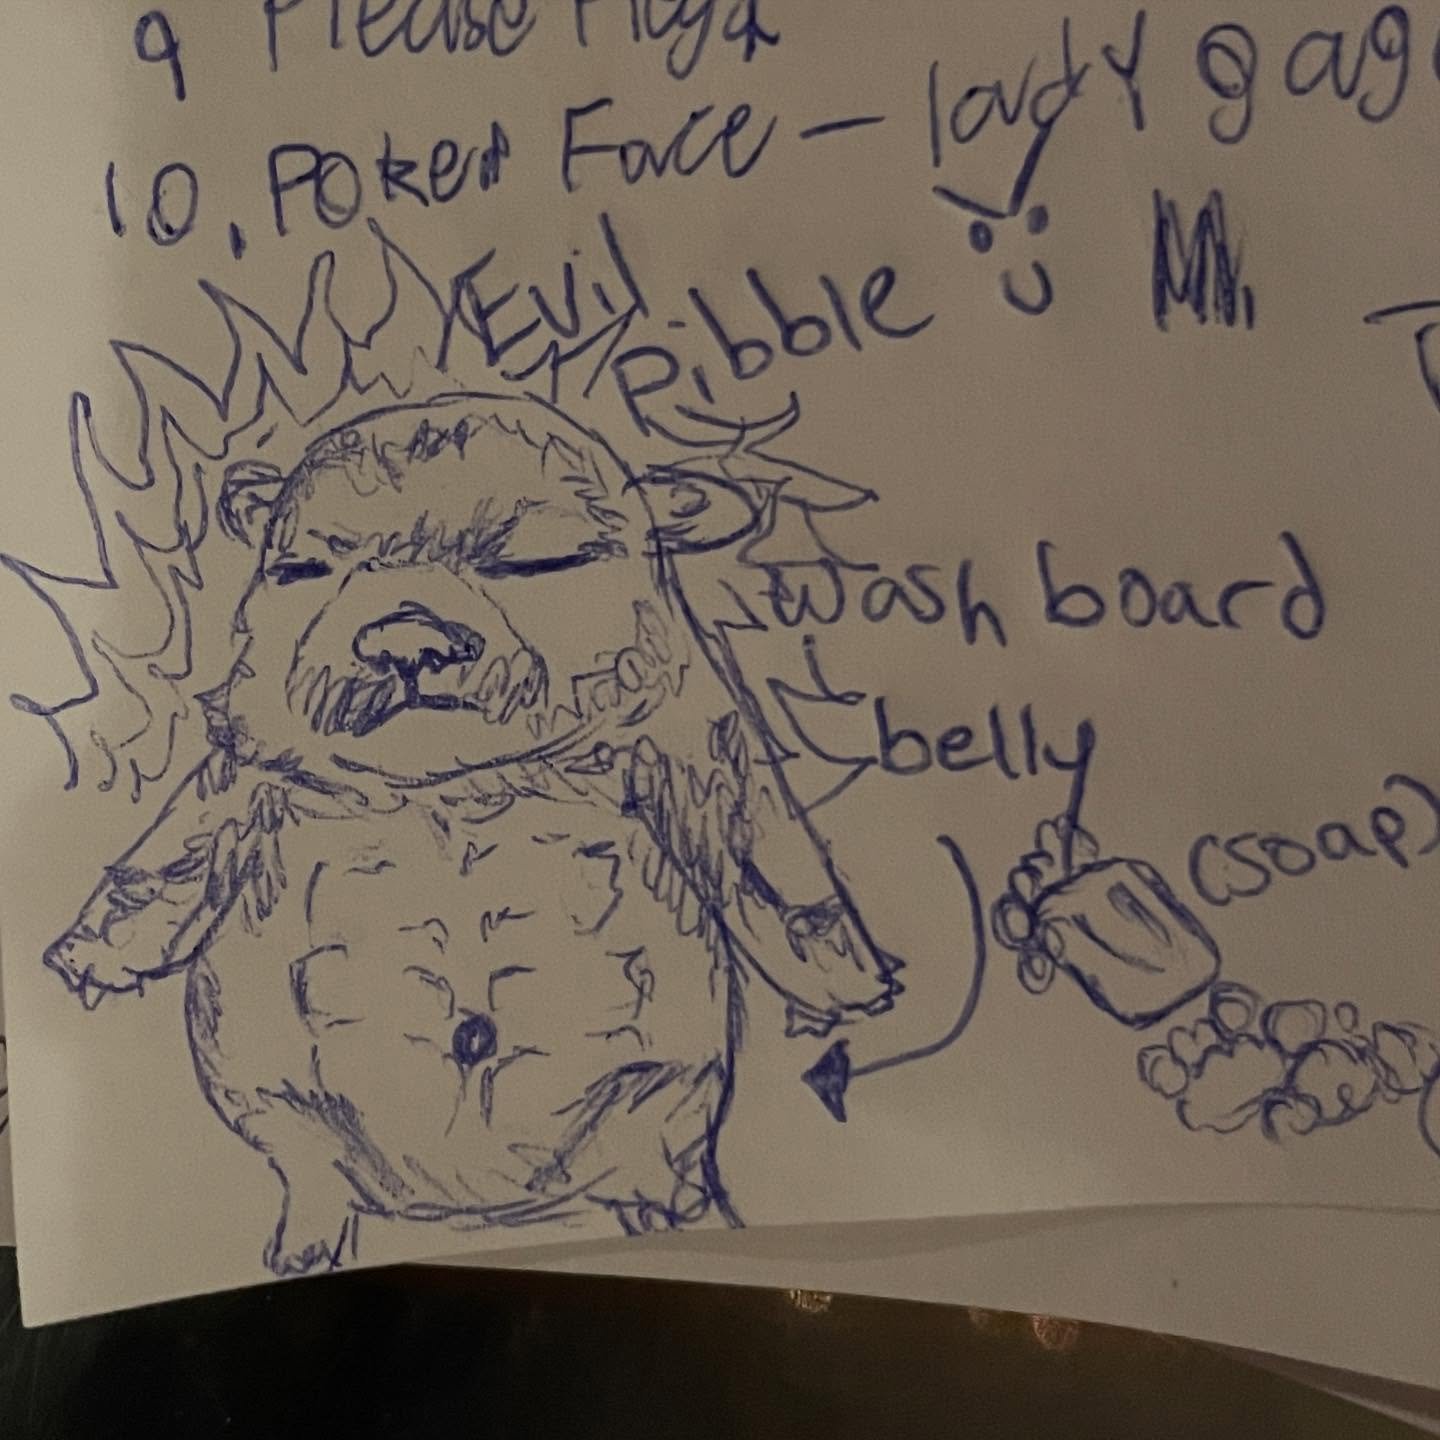 9 Please
10. Poker Face - lady gag
Evil
Pibble
Wash board
belly
(soap)